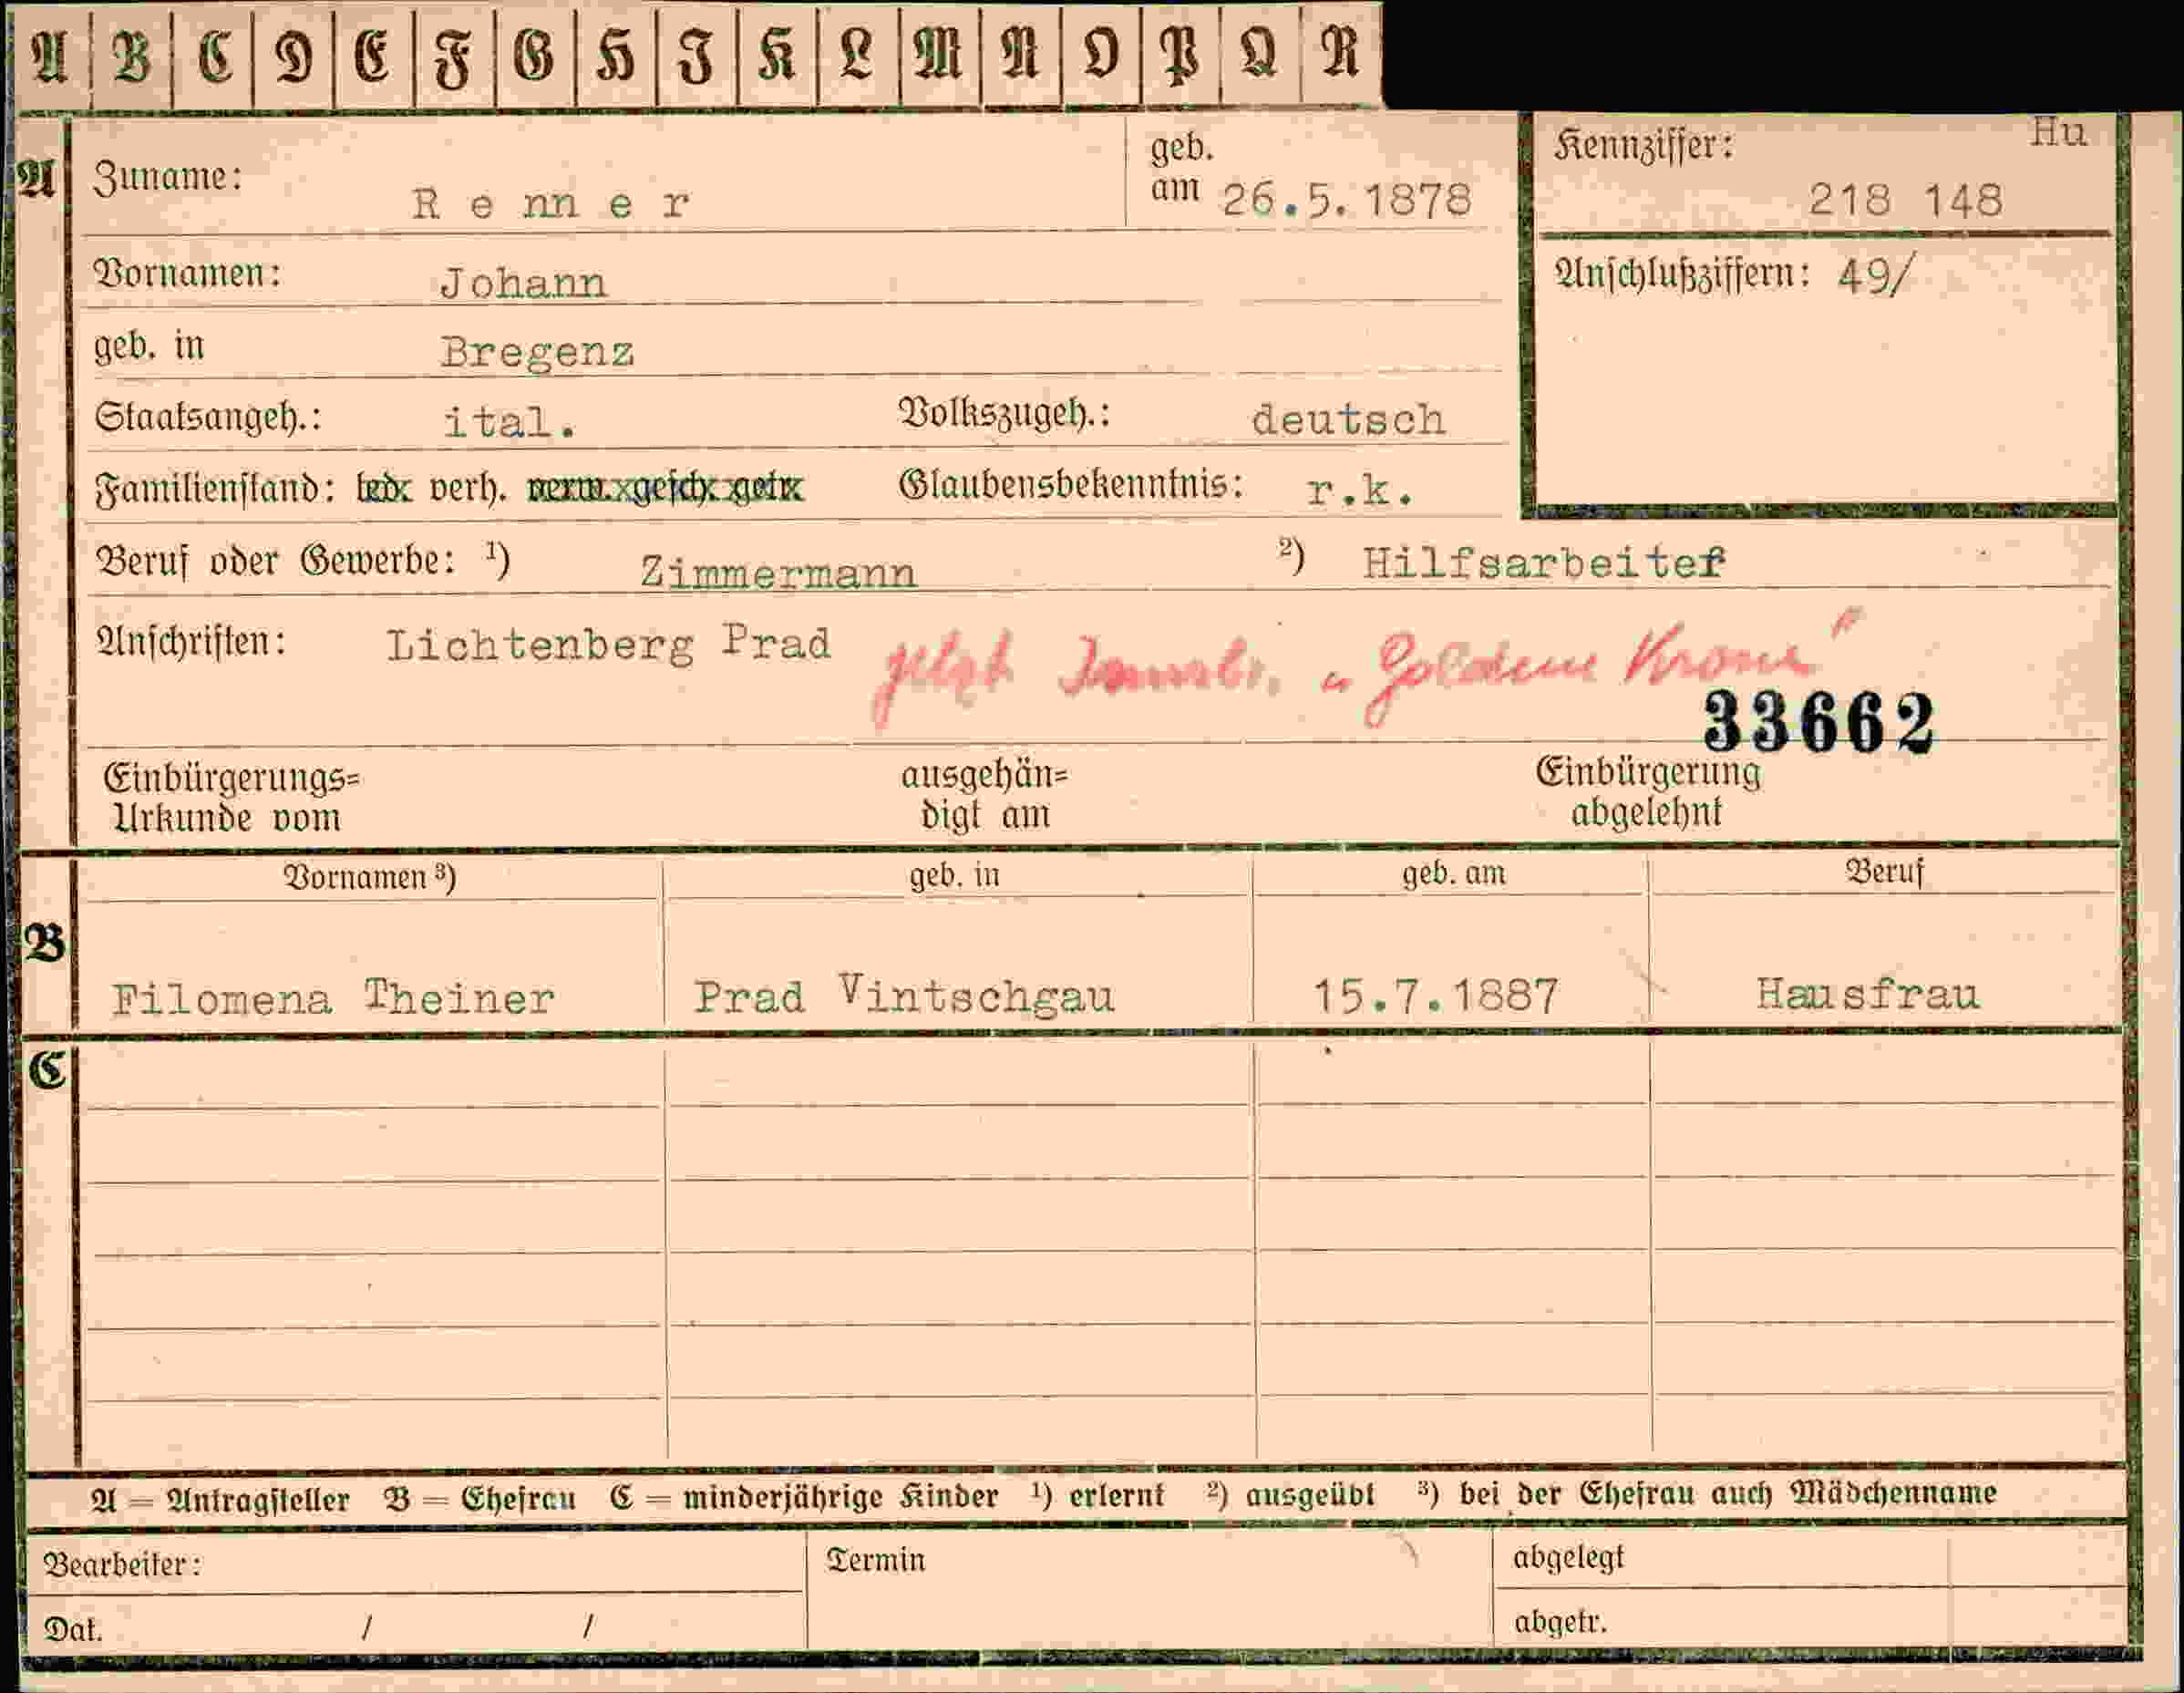 A B C D E F G H J K L M N O P Q R
Hu
A Zuname: R e nn e r geb. am 26.5.1878
Kennziffer: 218 148
Vornamen: Johann
Anschlußziffern: 49/
geb. in Bregenz
Staatsangeh.: ital. Volkszugeh.: deutsch
Familienstand: led. verh. verw. gesch. getr. Glaubensbekenntnis: r.k.
Beruf oder Gewerbe: ¹) Zimmermann ²) Hilfsarbeiter
Anschriften: Lichtenberg Prad jetzt "Goldene Krone"
33662
Einbürgerungs= ausgehän= Einbürgerung
Urkunde vom digt am abgelehnt
Vornamen ³) geb. in geb. am Beruf
B
Filomena Theiner Prad Vintschgau 15.7.1887 Hausfrau
C
A = Antragsteller B = Ehefrau C = minderjährige Kinder ¹) erlernt ²) ausgeübt ³) bei der Ehefrau auch Mädchenname
Bearbeiter: Termin abgelegt
Dat. / / abgetr.